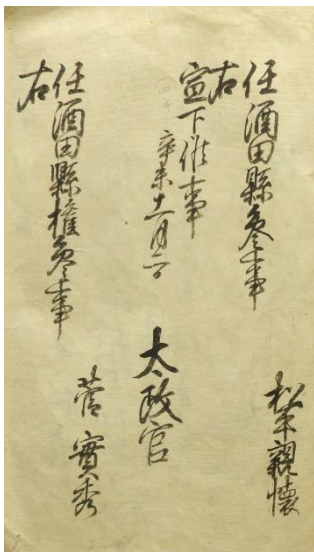 松平親懐
任酒田縣參事
右
宣下候事
辛未十一月二日
太政官
菅實秀
任酒田縣權參事
右